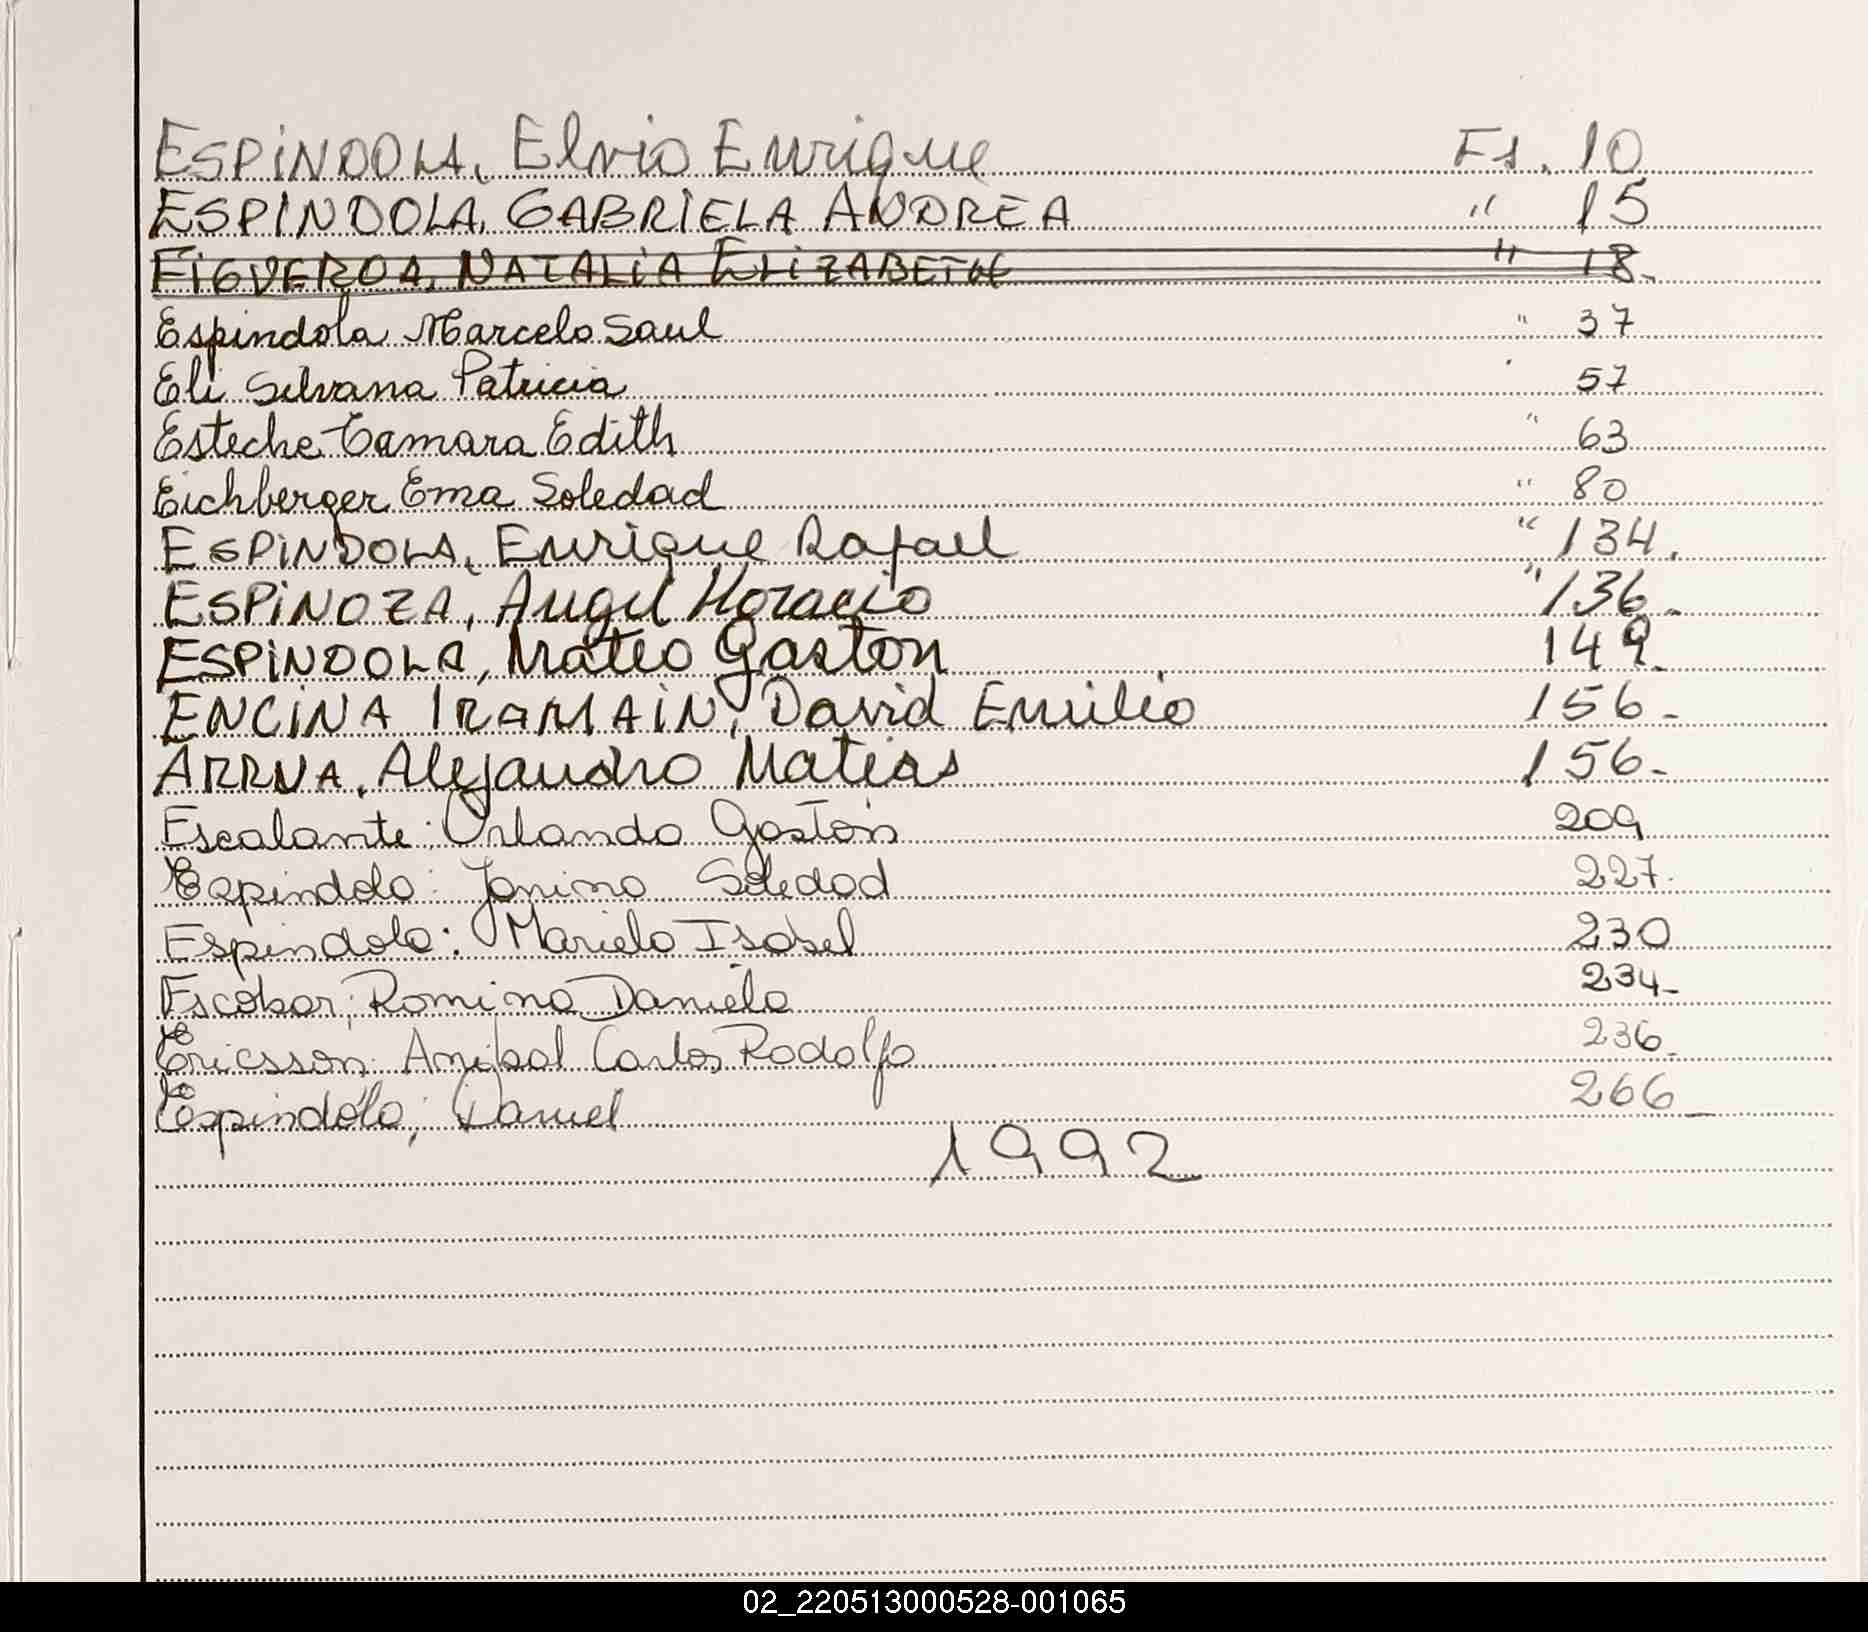 ESPINDOLA, Elvio Enrique Fs. 10
ESPINDOLA, GABRIELA ANDREA " 15
FIGUEROA, NATALIA ELIZABETH " 18.
Espindola Marcelo Saul " 37
Eli Silvana Patricia " 57
Esteche Tamara Edith " 63
Eichberger Ema Soledad " 80
ESPINDOLA, Enrique Rafael " 134.
ESPINOZA, Angel Horacio " 136.
ESPINDOLA, Mateo Gaston 149.
ENCINA IRAMAIN, David Emilio 156.
ARRUA, Alejandro Matias 156.
Escalante: Orlando Gastón 209
Espindola: Janina Soledad 227.
Espindola: Mariela Isabel 230
Escobar; Romina Daniela 234_
Ericsson; Anibal Carlos Rodolfo 236.
Espindola; Daniel 266_
1992
02_220513000528-001065